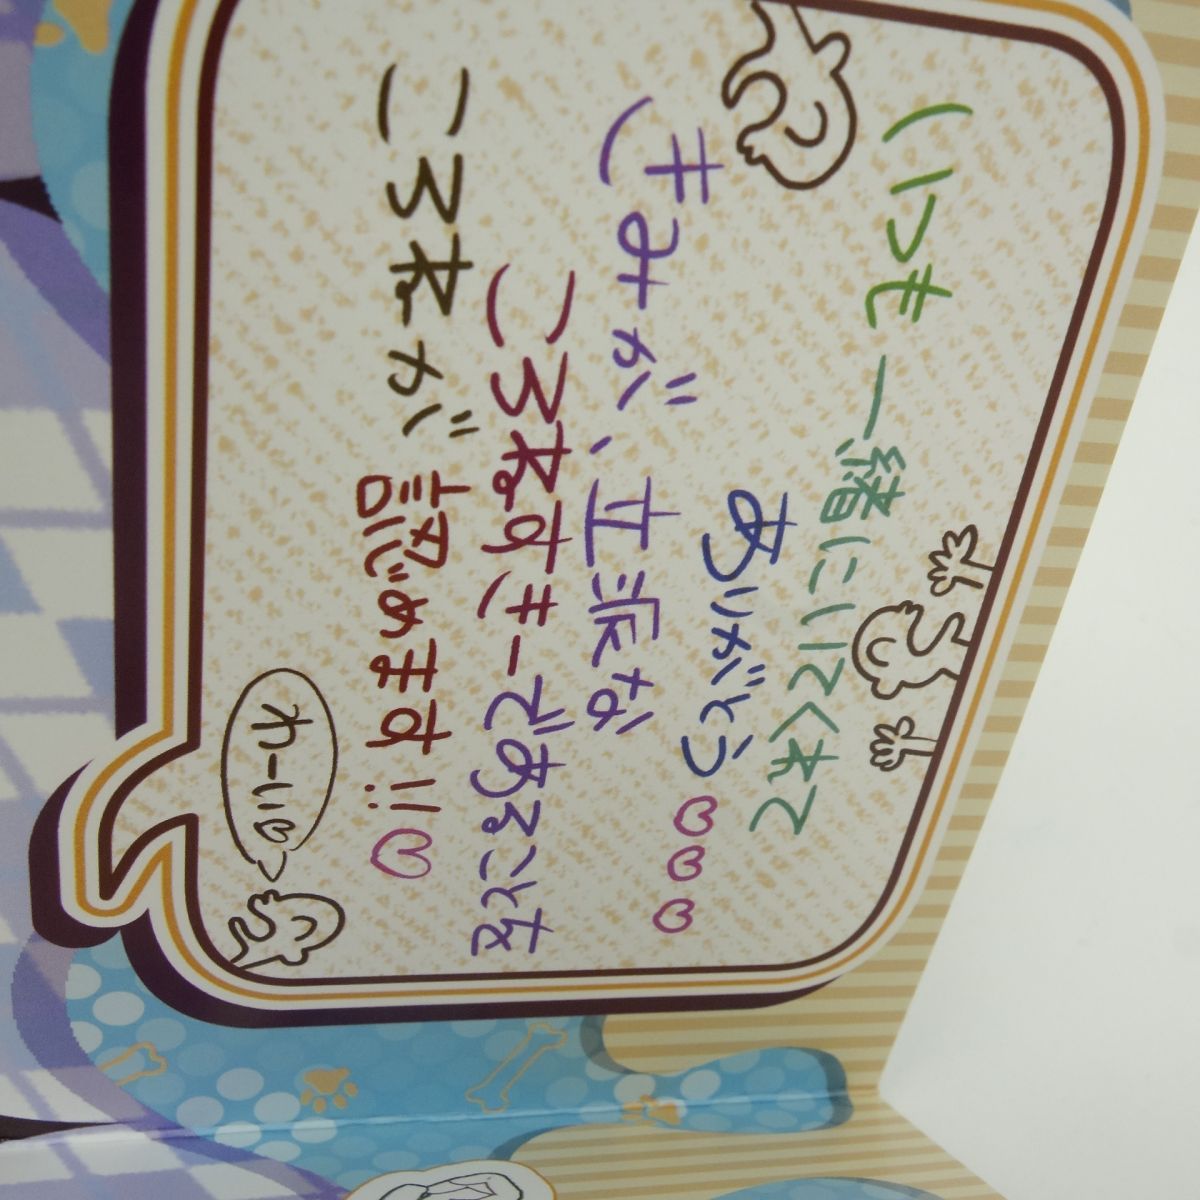 いつも一緒にいてくれて
ありがとう
きみが、立派な
ころねすきーであることを
ころねが認めます!!
わーい